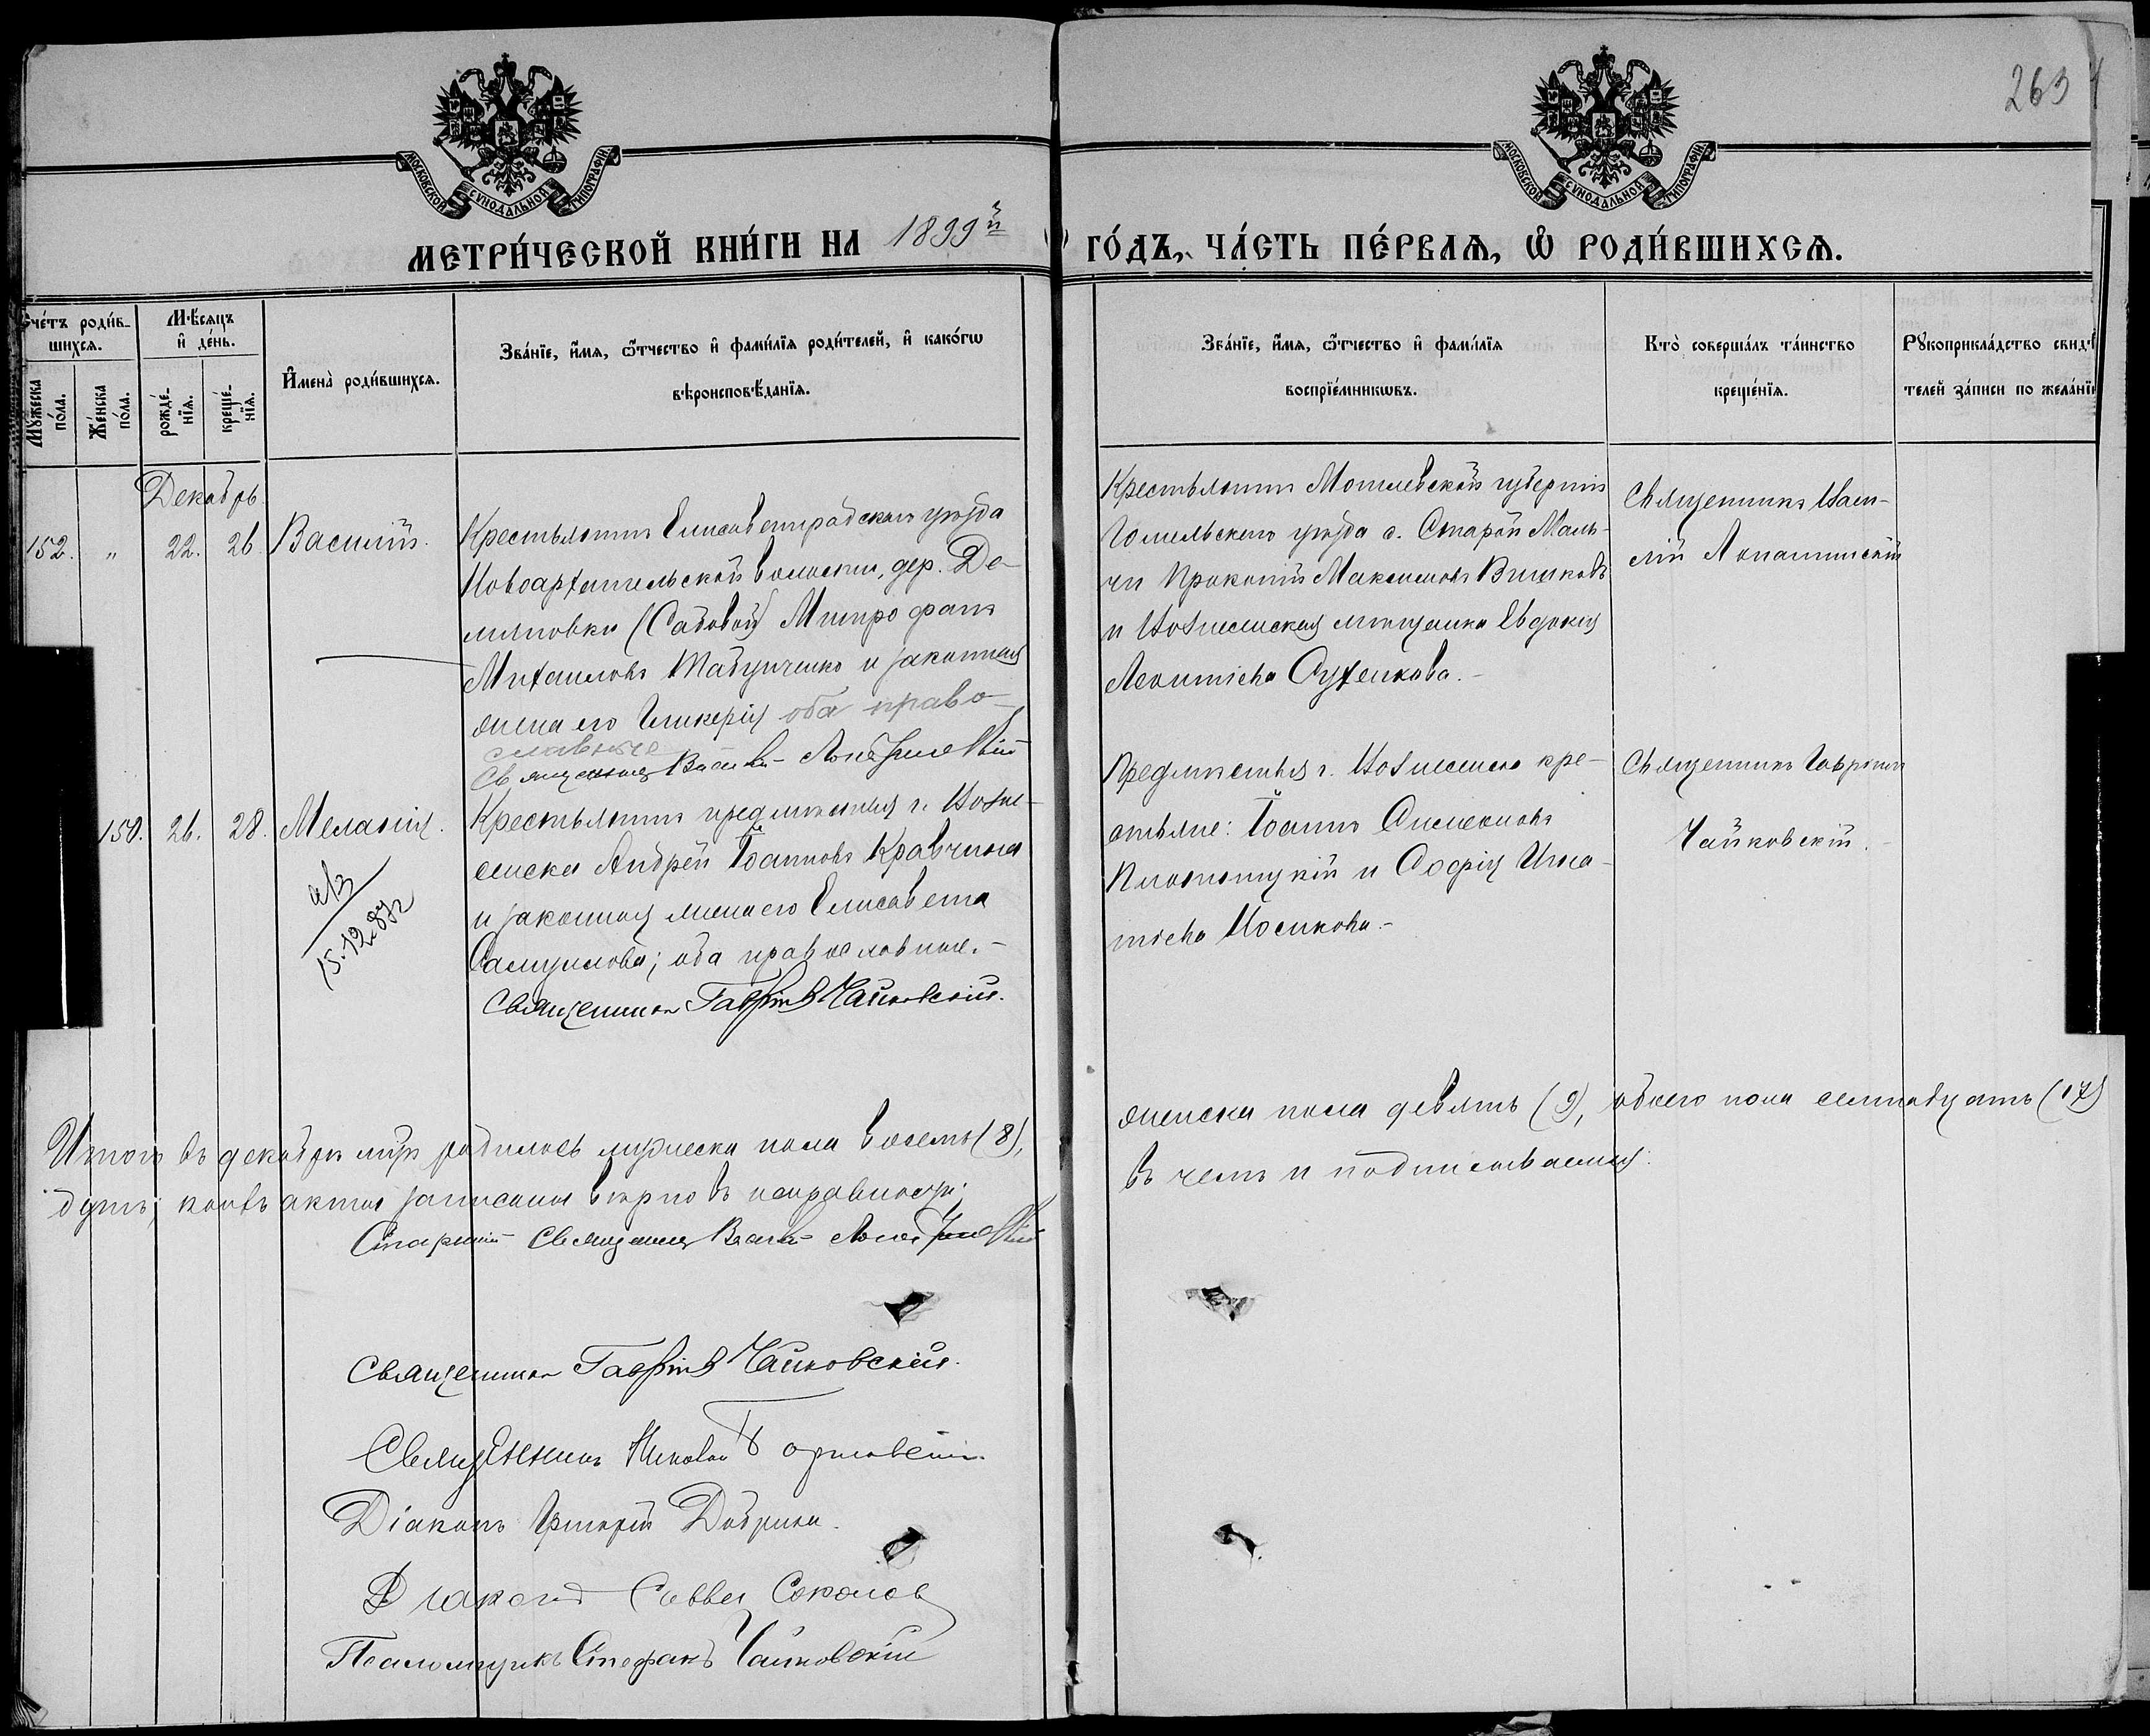 263
МОСКОВСКОЙ СѴНОДАЛЬНОЙ ТИПОГРАФІИ.
МОСКОВСКОЙ СѴНОДАЛЬНОЙ ТИПОГРАФІИ.
МЕТРИ́ЧЕСКОЙ КНИ́ГИ НА 1899й
ГО́ДЪ, ЧА́СТЬ ПЕ́РВАѦ, Ѡ҆ РОДИ́ВШИХСѦ.
Сче́тъ роди́в-
шихсѧ.
Мꙋ́жеска
по́ла.
Же́нска
по́ла.
Мѣ́сѧцъ
и҆ де́нь.
рожде́-
нїѧ.
креще́-
нїѧ.
И҆мена̀ роди́вшихсѧ.
Зва́нїе, и҆́мѧ, ѻ҆́тчество и҆ фами́лїѧ роди́телей, и҆ како́гѡ
вѣроисповѣ́данїѧ.
Зва́нїе, и҆́мѧ, ѻ҆́тчество и҆ фами́лїѧ
воспрїе́мникѡвъ.
Кто̀ соверша́лъ та́инство
креще́нїѧ.
Рꙋкоприкла́дство свидѣ́
телей за́писи по жела́нїю
Декабрь
152. " 22. 26. Василій.
Крестьянинъ Елисаветградскаго уѣзда
Новоархангельской волости, дер. Де-
мяновки (Садовой) Митрофанъ
Михаиловъ Табунченко и законная
жена его Гликерія оба право-
славные
Священникъ Василій Лопатинскій
Крестьянинъ Могилевской губерніи
Гомельскаго уѣзда с. Старой Маль-
чи Прокопій Максимовъ Вишковъ
и Вознесенская мѣщанка Евдокія
Леонтіева Сухенкова.-
Священникъ Васи-
лій Лопатинскій
150. 26. 28. Меланія.
15.12.87г
Крестьянинъ предмѣстья г. Возне-
сенска Андрей Іоанновъ Кравчина
и законная жена его Елисавета
Самуилова; оба православные.-
Священникъ Гавріилъ Чайковскій.
Предмѣстья г. Вознесенска кре-
стьяне: Іоаннъ Симеоновъ
и Софія Игна-
тіева Носикова.-
Священникъ Гавріилъ
Чайковскій.
Итого въ декабрѣ мѣсяцѣ родилось мужеска пола восемь (8),
женска пола девять (9), обоего пола семнадцать (17)
душъ; каковъ актъ записанъ вѣрно въ исправности;
въ чемъ и подписываемся:
Старшій Священникъ Василій Лопатинскій
Священникъ Гавріилъ Чайковскій.
Священникъ Николай
Діаконъ Григорій
Діаконъ Савва Соколов
Псаломщикъ Стефанъ Чайковскій